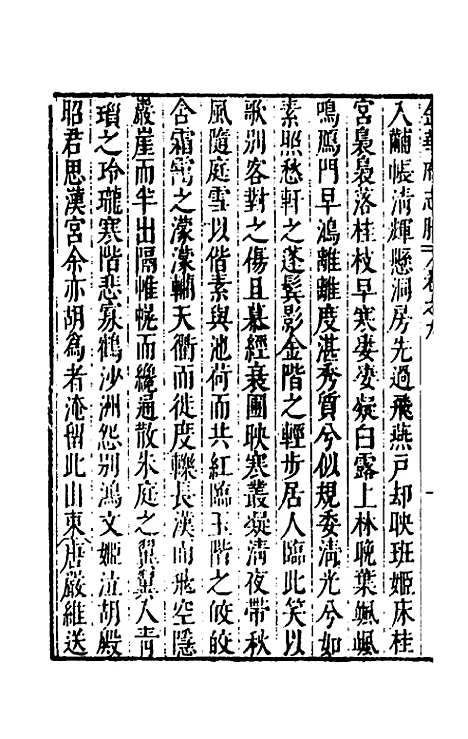 金華府志勝卷之九
入黼帳淸輝懸洞房先過飛燕戶却映班姬床桂
宮裊裊落桂枝早寒凄凄凝白露上林晚葉颯颯
鳴鴈門早鴻離離度湛秀質兮似規委淸光兮如
素照愁軒之蓬鬂影金階之輕步居人臨此笑以
歌别客對之傷且慕經衰圃映寒叢凝淸夜帶秋
風隨庭雪以偕素與池荷而共紅臨玉階之皎皎
含霜靄之濛濛輔天衢而徙度轢長漢而飛空隱
巖崖而半出隔帷幌而纔通散朱庭之奕奕入青
瑣之玲瓏寒階悲寡鶴沙洲怨别鴻文姬泣胡殿
昭君思漢宮余亦胡爲者淹留此山東 唐嚴維送